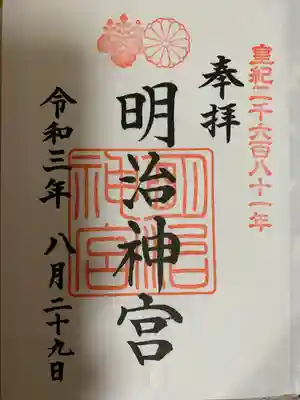 皇紀二千六百八十一年
奉拝
明治神宮
明治神宮
令和三年 八月二十九日